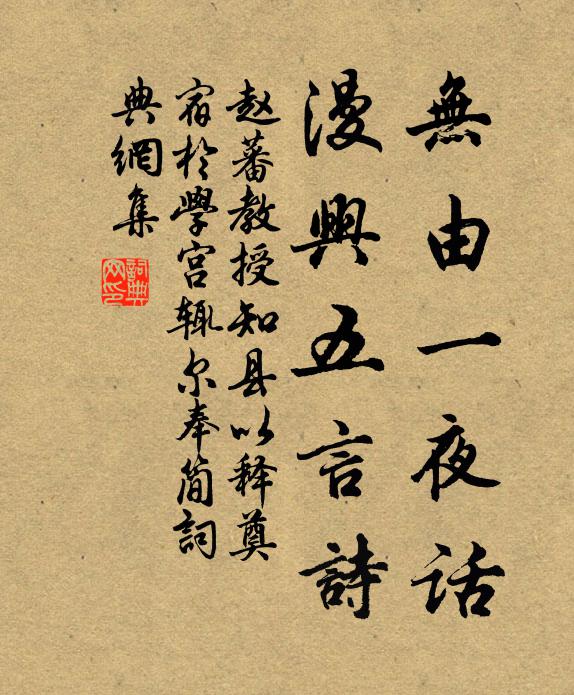 無由一夜话
漫興五言詩
赵蕃教授知县以释奠
宿於學宫辄尔奉简詞
典網集
詞典
网印